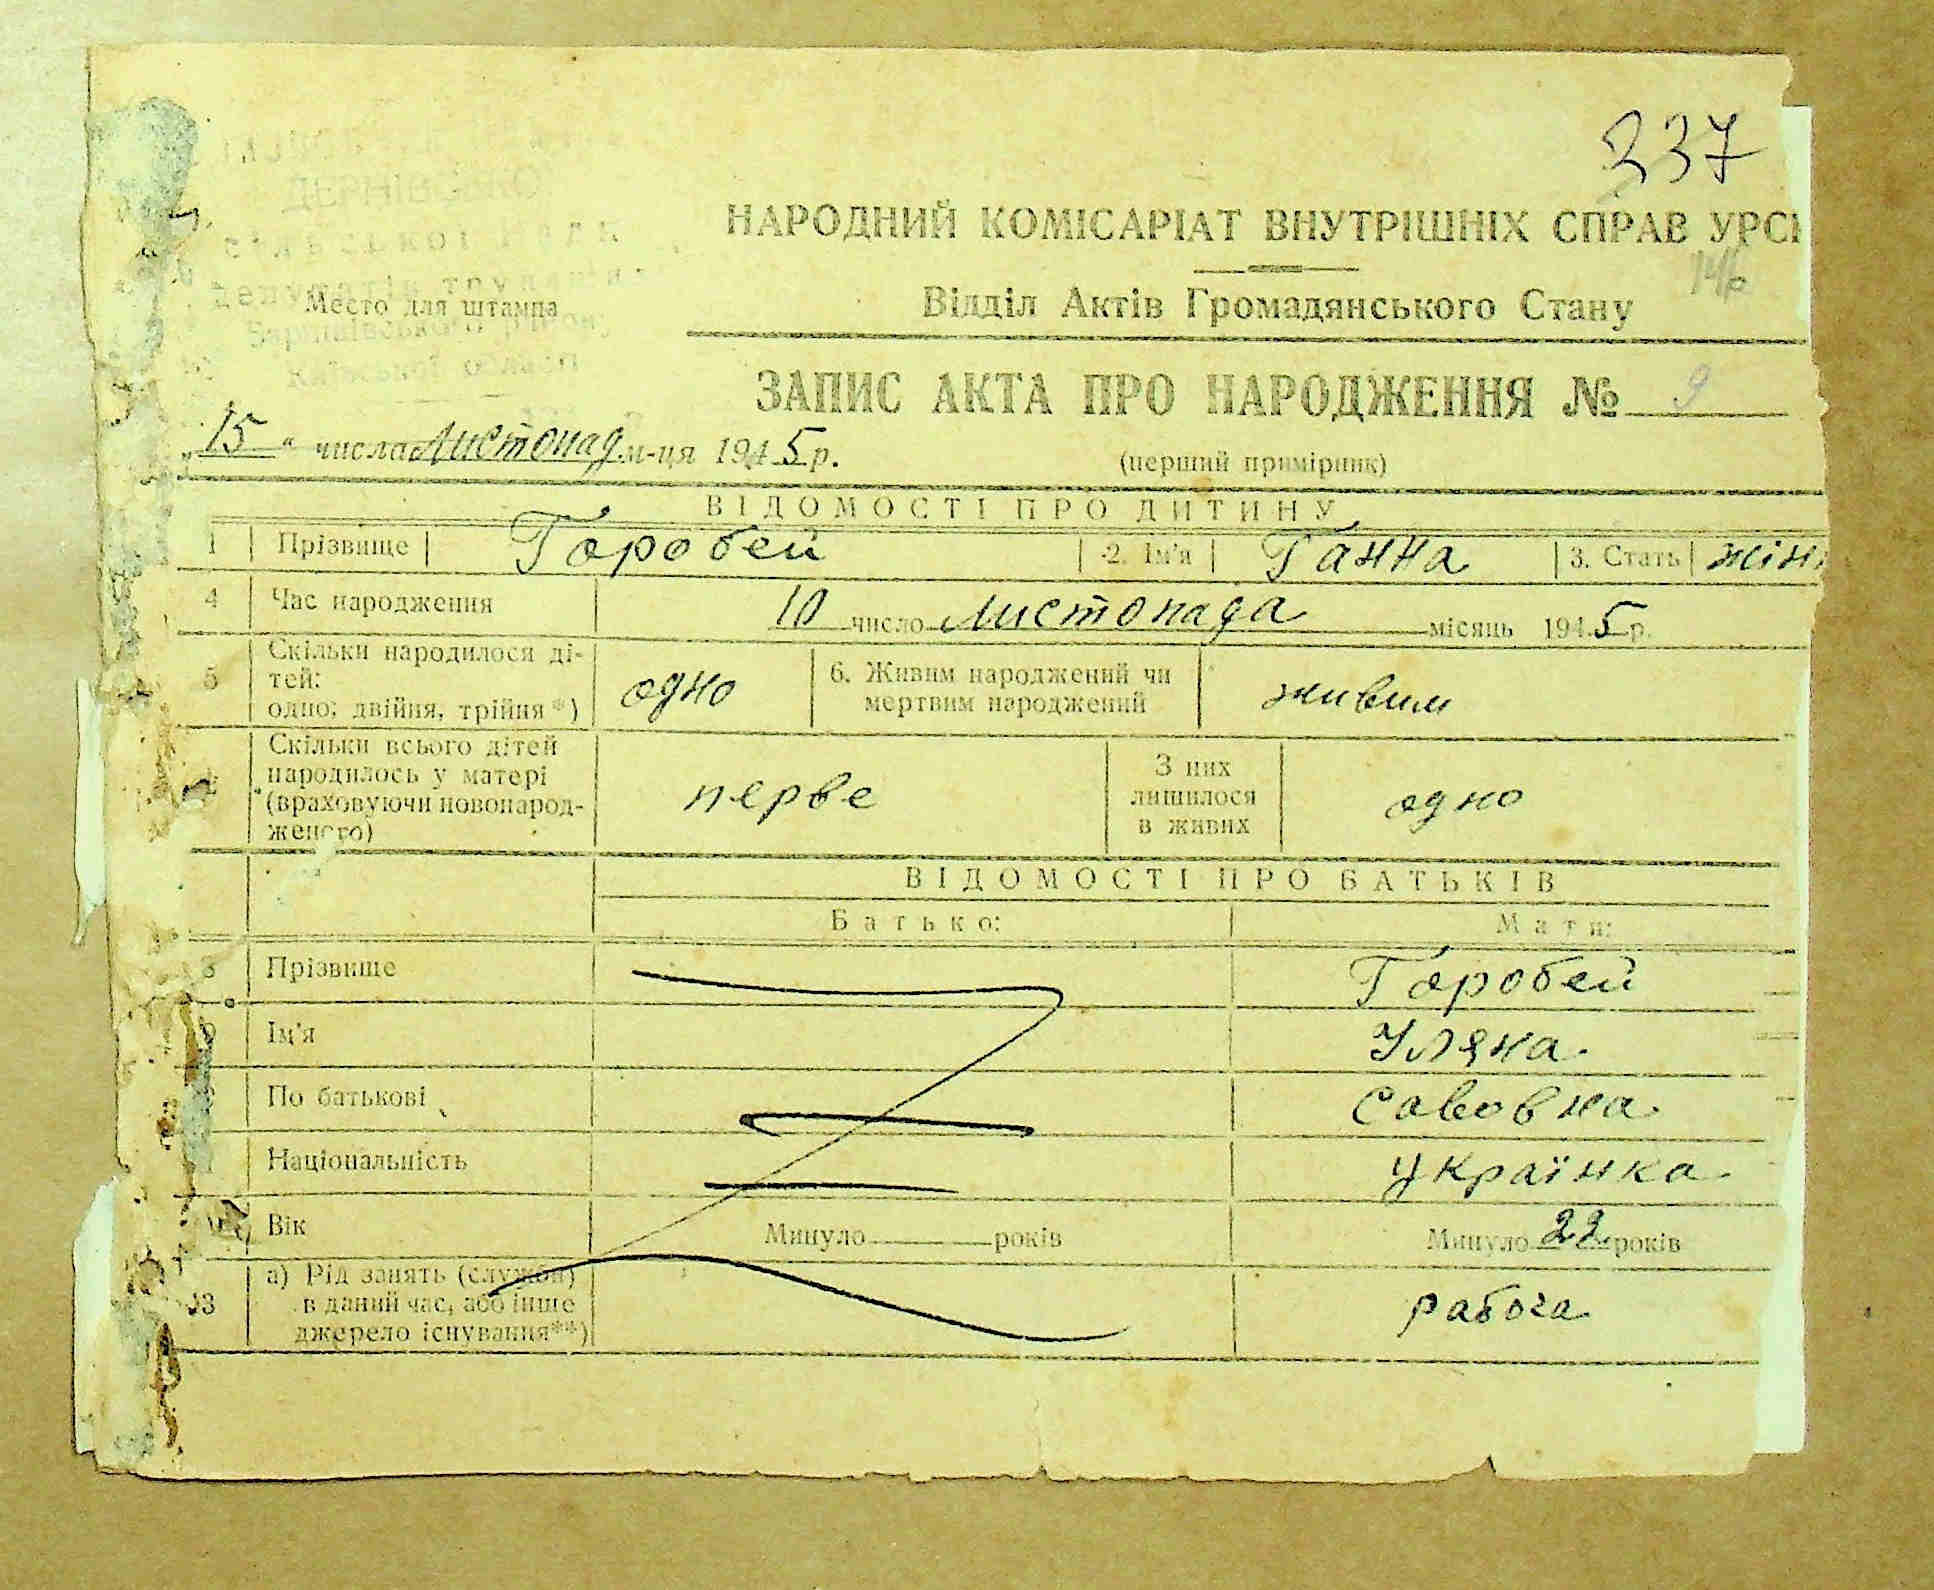 337
НАРОДНИЙ КОМІСАРІАТ ВНУТРІШНІХ СПРАВ УРС
146
Відділ Актів Громадянського Стану
депутатів труд
Место для штампа
Київської області
ЗАПИС АКТА ПРО НАРОДЖЕННЯ № 9
„15“ числа Листопад м-ця 1945 р.
(перший примірник)
ВІДОМОСТІ ПРО ДИТИНУ
1 Прізвище Горобей 2. Ім'я Ганна 3. Стать жін
4 Час народження 10 число Листопада місяць 1945 р.
5 Скільки народилося ді-
тей:
одно; двійня, трійня*) одно 6. Живим народжений чи
мертвим народжений живим
Скільки всього дітей
народилось у матері
(враховуючи новонарод-
женого) перве З них
лишилося
в живих одно
ВІДОМОСТІ ПРО БАТЬКІВ
Батько: Мати:
8 Прізвище Горобей
9 Ім'я Уляна
По батькові Савовна
Національність Українка
Вік Минуло років Минуло 22 років
13 а) Рід занять (служби)
в даний час, або інше
джерело існування**) работа